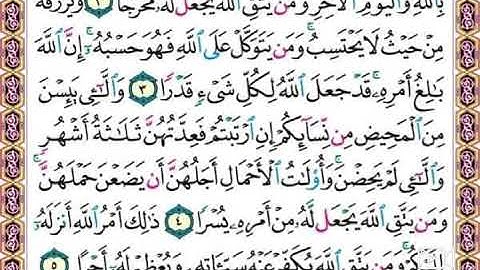 بِاللَّهِ وَالْيَوْمِ الْآخِرِ وَمَن يَتَّقِ اللَّهَ يَجْعَل لَّهُ مَخْرَجًا ٢ وَيَرْزُقْهُ
مِنْ حَيْثُ لَا يَحْتَسِبُ ۚ وَمَن يَتَوَكَّلْ عَلَى اللَّهِ فَهُوَ حَسْبُهُ ۚ إِنَّ اللَّهَ
بَالِغُ أَمْرِهِ ۚ قَدْ جَعَلَ اللَّهُ لِكُلِّ شَيْءٍ قَدْرًا ٣ وَالَّٰٓـِٔي يَئِسْنَ
مِنَ الْمَحِيضِ مِن نِّسَآئِكُمْ إِنِ ارْتَبْتُمْ فَعِدَّتُهُنَّ ثَلَاثَةُ أَشْهُرٍ
وَالَّٰٓـِٔي لَمْ يَحِضْنَ ۚ وَأُولَاتُ الْأَحْمَالِ أَجَلُهُنَّ أَن يَضَعْنَ حَمْلَهُنَّ ۚ
وَمَن يَتَّقِ اللَّهَ يَجْعَل لَّهُ مِنْ أَمْرِهِ يُسْرًا ٤ ذَٰلِكَ أَمْرُ اللَّهِ أَنزَلَهُ
إِلَيْكُمْ ۚ وَمَن يَتَّقِ اللَّهَ يُكَفِّرْ عَنْهُ سَيِّئَاتِهِ وَيُعْظِمْ لَهُ أَجْرًا ٥